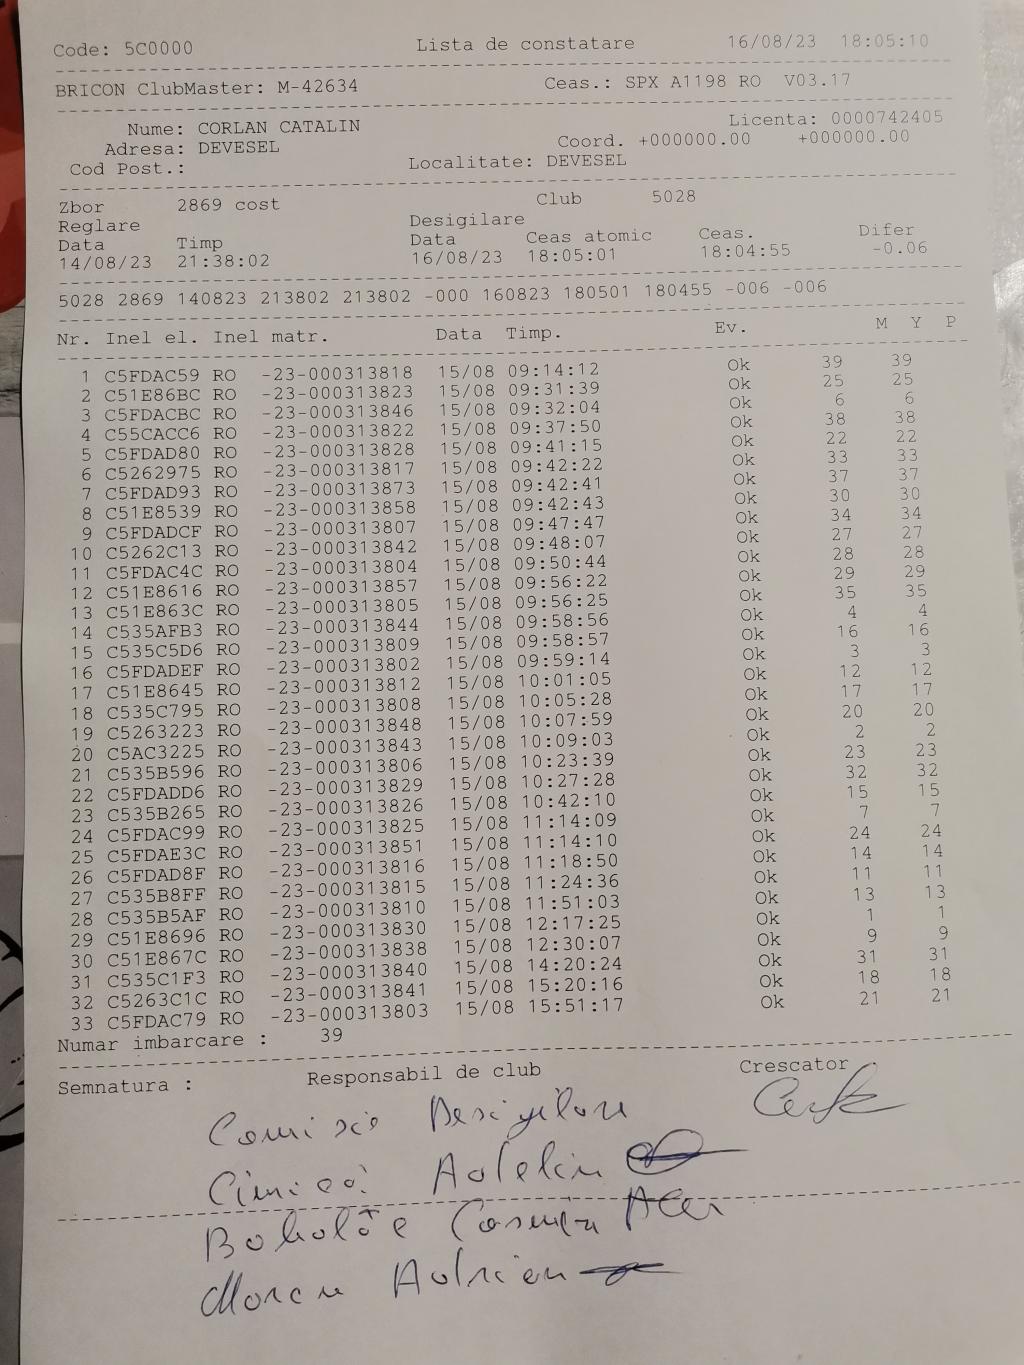 Code: 5C0000 Lista de constatare 16/08/23 18:05:10
BRICON ClubMaster: M-42634 Ceas.: SPX A1198 RO V03.17
Nume: CORLAN CATALIN Licenta: 0000742405
Adresa: DEVESEL Coord. +000000.00 +000000.00
Cod Post.: Localitate: DEVESEL
Zbor 2869 cost Club 5028
Reglare Desigilare
Data Timp Data Ceas atomic Ceas. Difer
14/08/23 21:38:02 16/08/23 18:05:01 18:04:55 -0.06
5028 2869 140823 213802 213802 -000 160823 180501 180455 -006 -006
Nr. Inel el. Inel matr. Data Timp. Ev. M Y P
1 C5FDAC59 RO -23-000313818 15/08 09:14:12 Ok 39 39
2 C51E86BC RO -23-000313823 15/08 09:31:39 Ok 25 25
3 C5FDACBC RO -23-000313846 15/08 09:32:04 Ok 6 6
4 C55CACC6 RO -23-000313822 15/08 09:37:50 Ok 38 38
5 C5FDAD80 RO -23-000313828 15/08 09:41:15 Ok 22 22
6 C5262975 RO -23-000313817 15/08 09:42:22 Ok 33 33
7 C5FDAD93 RO -23-000313873 15/08 09:42:41 Ok 37 37
8 C51E8539 RO -23-000313858 15/08 09:42:43 Ok 30 30
9 C5FDADCF RO -23-000313807 15/08 09:47:47 Ok 34 34
10 C5262C13 RO -23-000313842 15/08 09:48:07 Ok 27 27
11 C5FDAC4C RO -23-000313804 15/08 09:50:44 Ok 28 28
12 C51E8616 RO -23-000313857 15/08 09:56:22 Ok 29 29
13 C51E863C RO -23-000313805 15/08 09:56:25 Ok 35 35
14 C535AFB3 RO -23-000313844 15/08 09:58:56 Ok 4 4
15 C535C5D6 RO -23-000313809 15/08 09:58:57 Ok 16 16
16 C5FDADEF RO -23-000313802 15/08 09:59:14 Ok 3 3
17 C51E8645 RO -23-000313812 15/08 10:01:05 Ok 12 12
18 C535C795 RO -23-000313808 15/08 10:05:28 Ok 17 17
19 C5263223 RO -23-000313848 15/08 10:07:59 Ok 20 20
20 C5AC3225 RO -23-000313843 15/08 10:09:03 Ok 2 2
21 C535B596 RO -23-000313806 15/08 10:23:39 Ok 23 23
22 C5FDADD6 RO -23-000313829 15/08 10:27:28 Ok 32 32
23 C535B265 RO -23-000313826 15/08 10:42:10 Ok 15 15
24 C5FDAC99 RO -23-000313825 15/08 11:14:09 Ok 7 7
25 C5FDAE3C RO -23-000313851 15/08 11:14:10 Ok 24 24
26 C5FDAD8F RO -23-000313816 15/08 11:18:50 Ok 14 14
27 C535B8FF RO -23-000313815 15/08 11:24:36 Ok 11 11
28 C535B5AF RO -23-000313810 15/08 11:51:03 Ok 13 13
29 C51E8696 RO -23-000313830 15/08 12:17:25 Ok 1 1
30 C51E867C RO -23-000313838 15/08 12:30:07 Ok 9 9
31 C535C1F3 RO -23-000313840 15/08 14:20:24 Ok 31 31
32 C5263C1C RO -23-000313841 15/08 15:20:16 Ok 18 18
33 C5FDAC79 RO -23-000313803 15/08 15:51:17 Ok 21 21
Numar imbarcare : 39
Semnatura : Responsabil de club Crescator
Comisie Desigilare
Adelin
Cosmin
Adrian